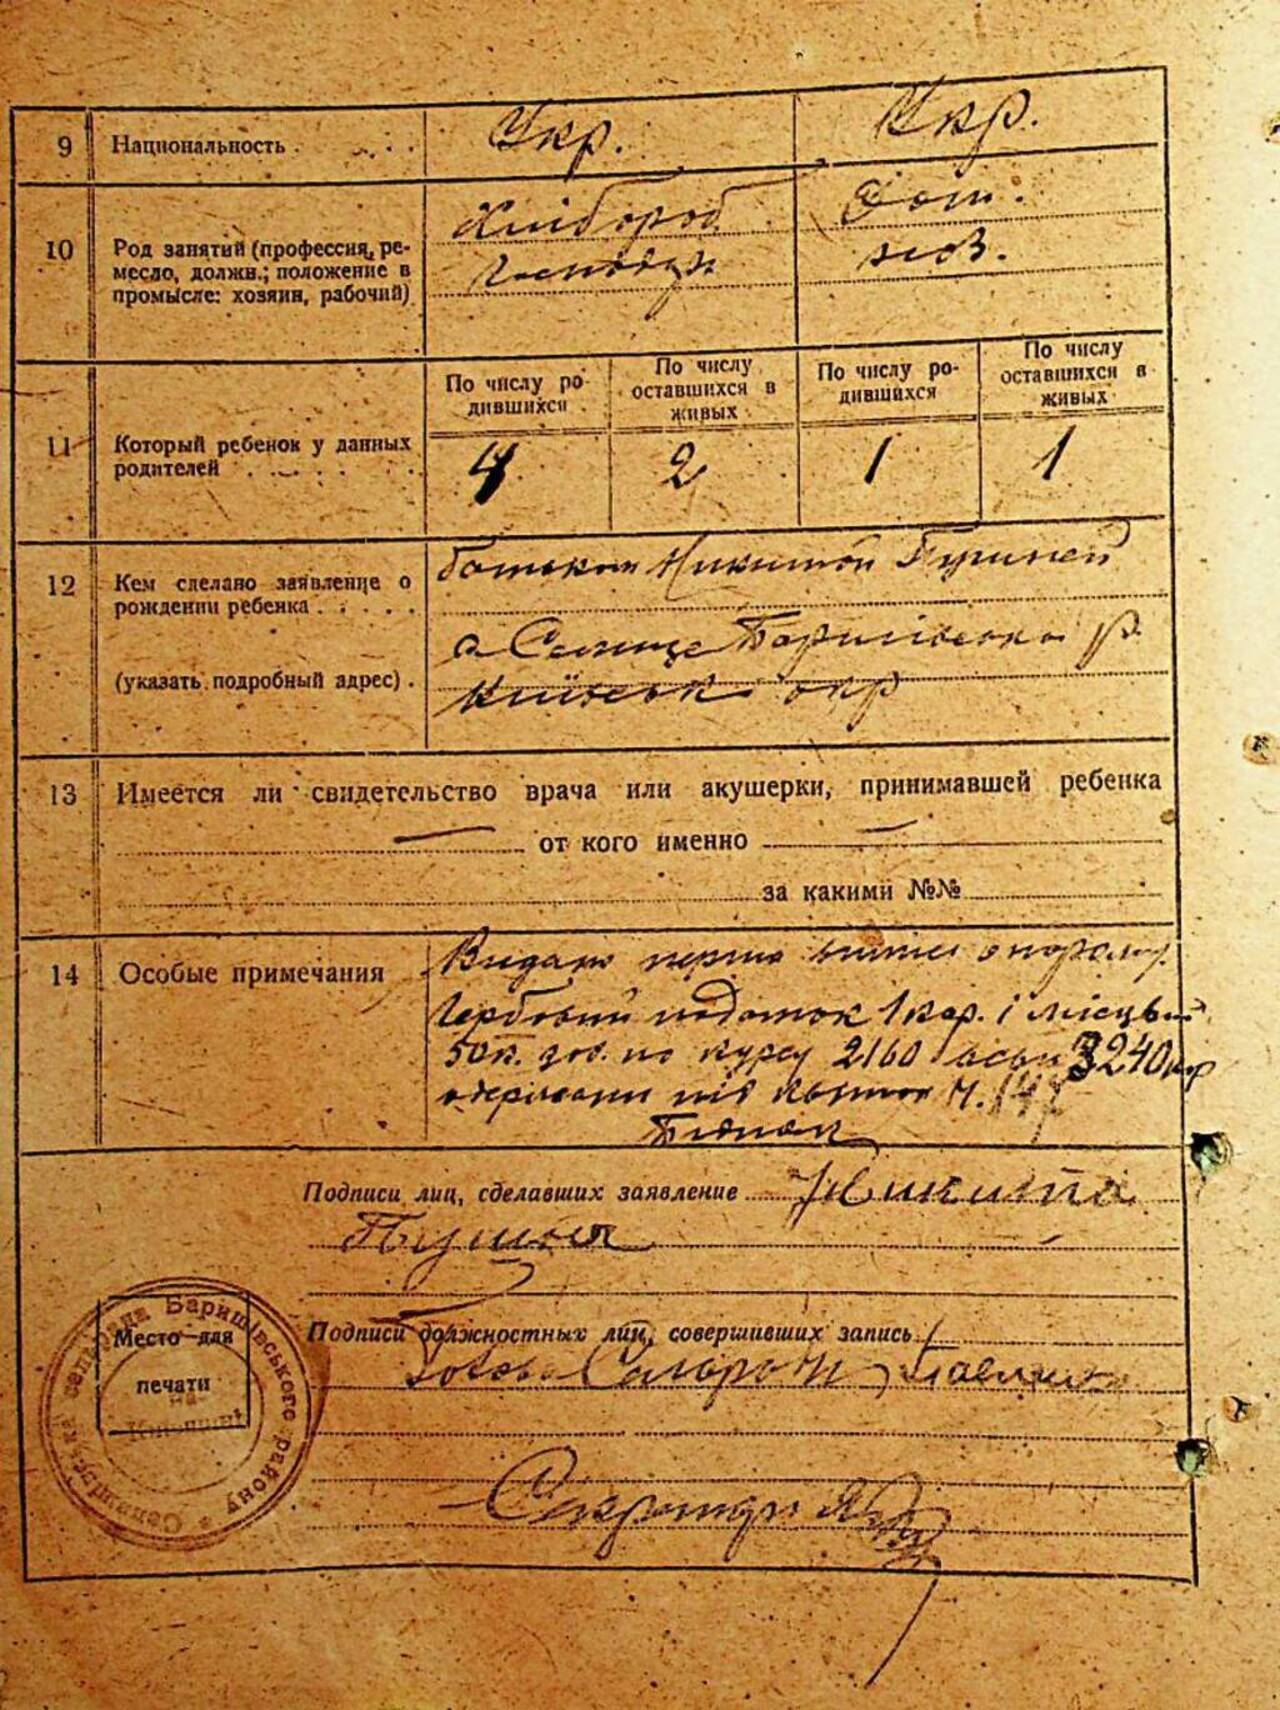 9 Национальность Укр. Укр.
10 Род занятий (профессия, ре-
месло, должн.; положение в
промысле: хозяин, рабочий)
Хлібороб
Дом.
хоз.
По числу ро-
дившихся
По числу
оставшихся в
живых
По числу ро-
дившихся
По числу
оставшихся в
живых
11 Который ребенок у данных
родителей
4 2 1 1
12 Кем сделано заявление о
рождении ребенка
(указать подробный адрес)
батьком Никитой
с Селище Баришівського р.
Київської окр
13 Имеется ли свидетельство врача или акушерки, принимавшей ребенка
от кого именно
за какими №№
14 Особые примечания
Гербовий податок 1 кар. і місцевий
50к. зол. по курсу 2160 всьго 3240 кр
одержано під квиток Ч. 147
Подписи лиц, сделавших заявление Никита
Подписи должностных лиц, совершивших запись
Голова Сільради
Секретарь
сельрада Баришівського району
Место для
печати